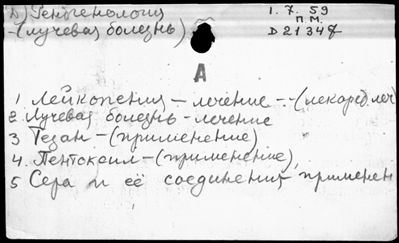 D) Рентгенология
-(лучевая болезнь)
1. 7. 59
П.М.
D 21347
А
1 Лейкопения - лечение -
2 Лучевая болезнь - лечение
3 Тезан - (применение)
4. Пентоксил - (применение)
5 Сера и её соединения применен